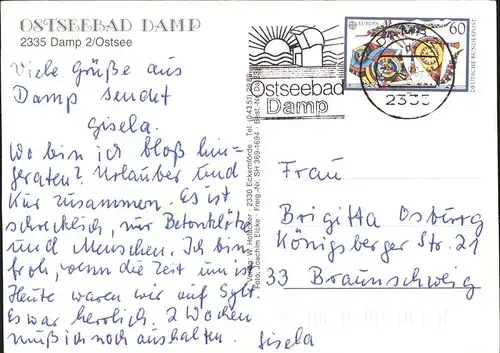 OSTSEEBAD DAMP
2335 Damp 2/Ostsee
Viele Grüße aus
Damp sendet
Gisela.
Wo bin ich bloß hin-
geraten? Urlauber und
Kur zusammen. Es ist
schrecklich, nur Betonklötze
und Menschen. Ich bin
froh, wenn die Zeit um ist
Heute waren wir auf Sylt.
Es war herrlich. 2 Wochen
muß ich noch aushalten.
Gisela
Ostseebad
Damp
2335
EUROPA
60
DEUTSCHE BUNDESPOST
2330 Eckernförde · Tel. (04351)
Foto: Joachim Eicke · Freig.-Nr. SH 369-1694 · Best.-Nr.
Frau
Brigitta Osburg
Königsberger Str. 21
33 Braunschweig